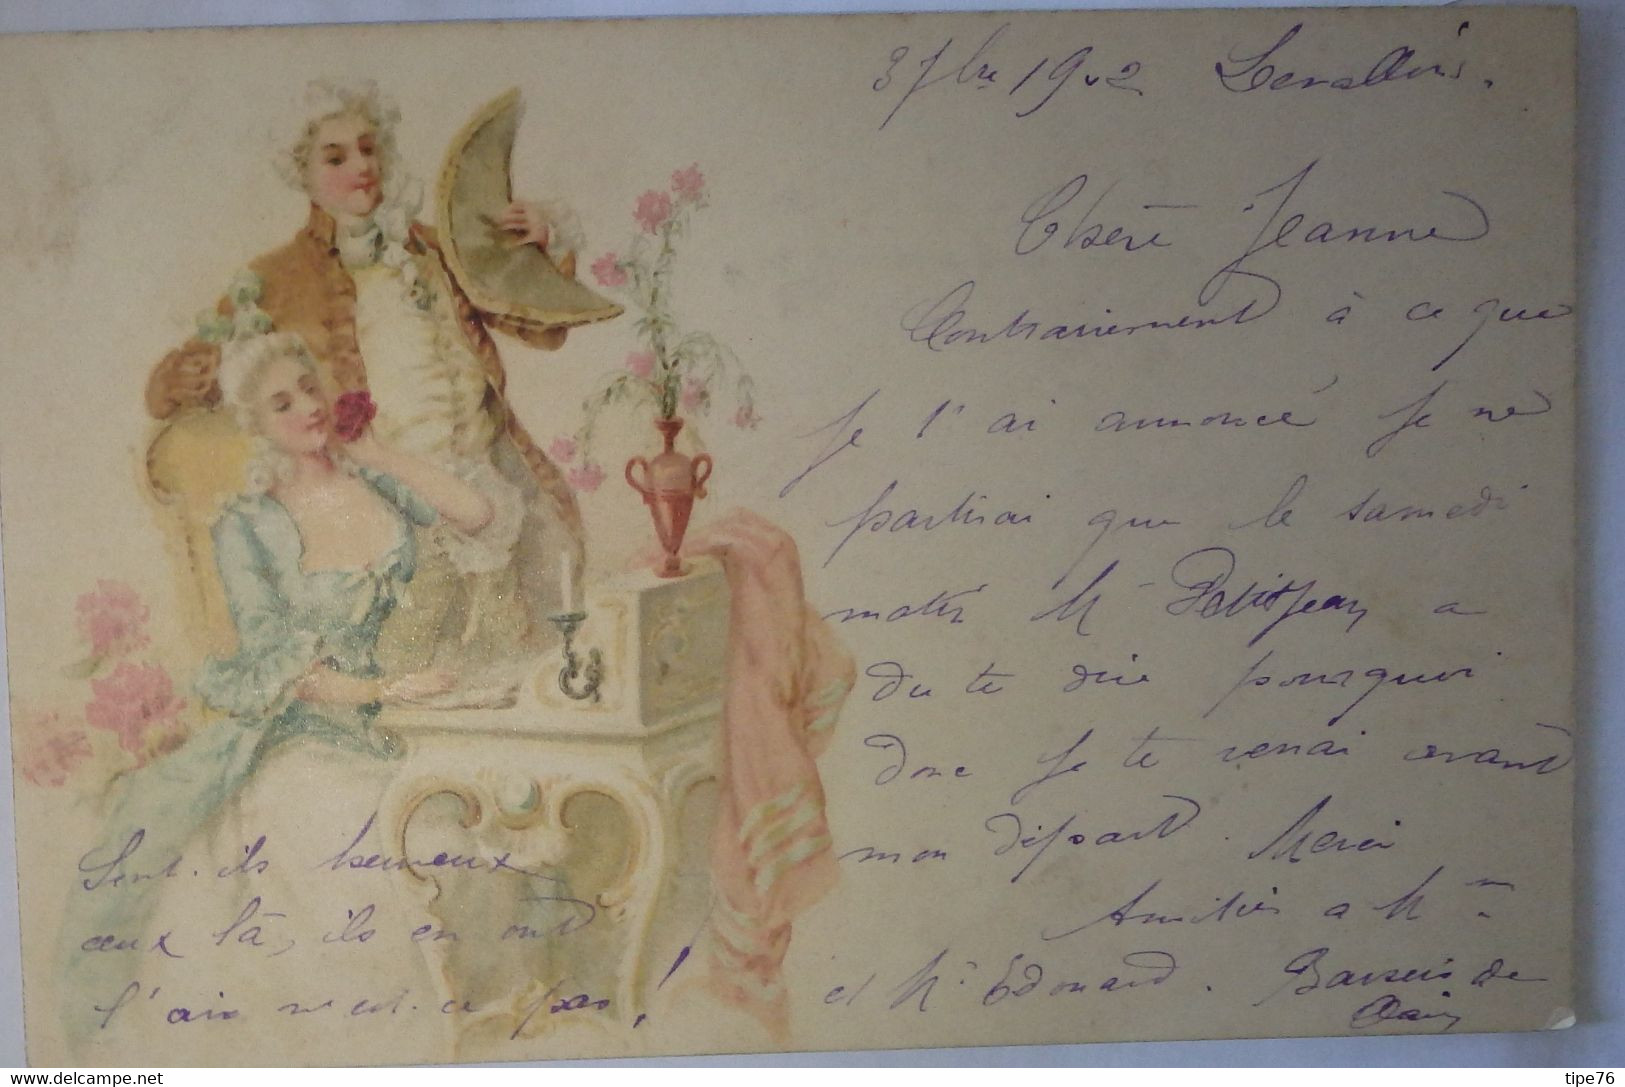 3 7bre 1902 Levallois.
Chère Jeanne
Contrairement à ce que
je t'ai annoncé je ne
partirai que le samedi
matin Mr Petitjean a
du te dire pourquoi
donc je te verrai avant
mon départ. Merci
Amitiés a Mme
et Mr Edouard. Baisers de
Sont-ils heureux
ceux là, ils en ont
l'air n'est-ce pas!
www.delcampe.net
tipe76